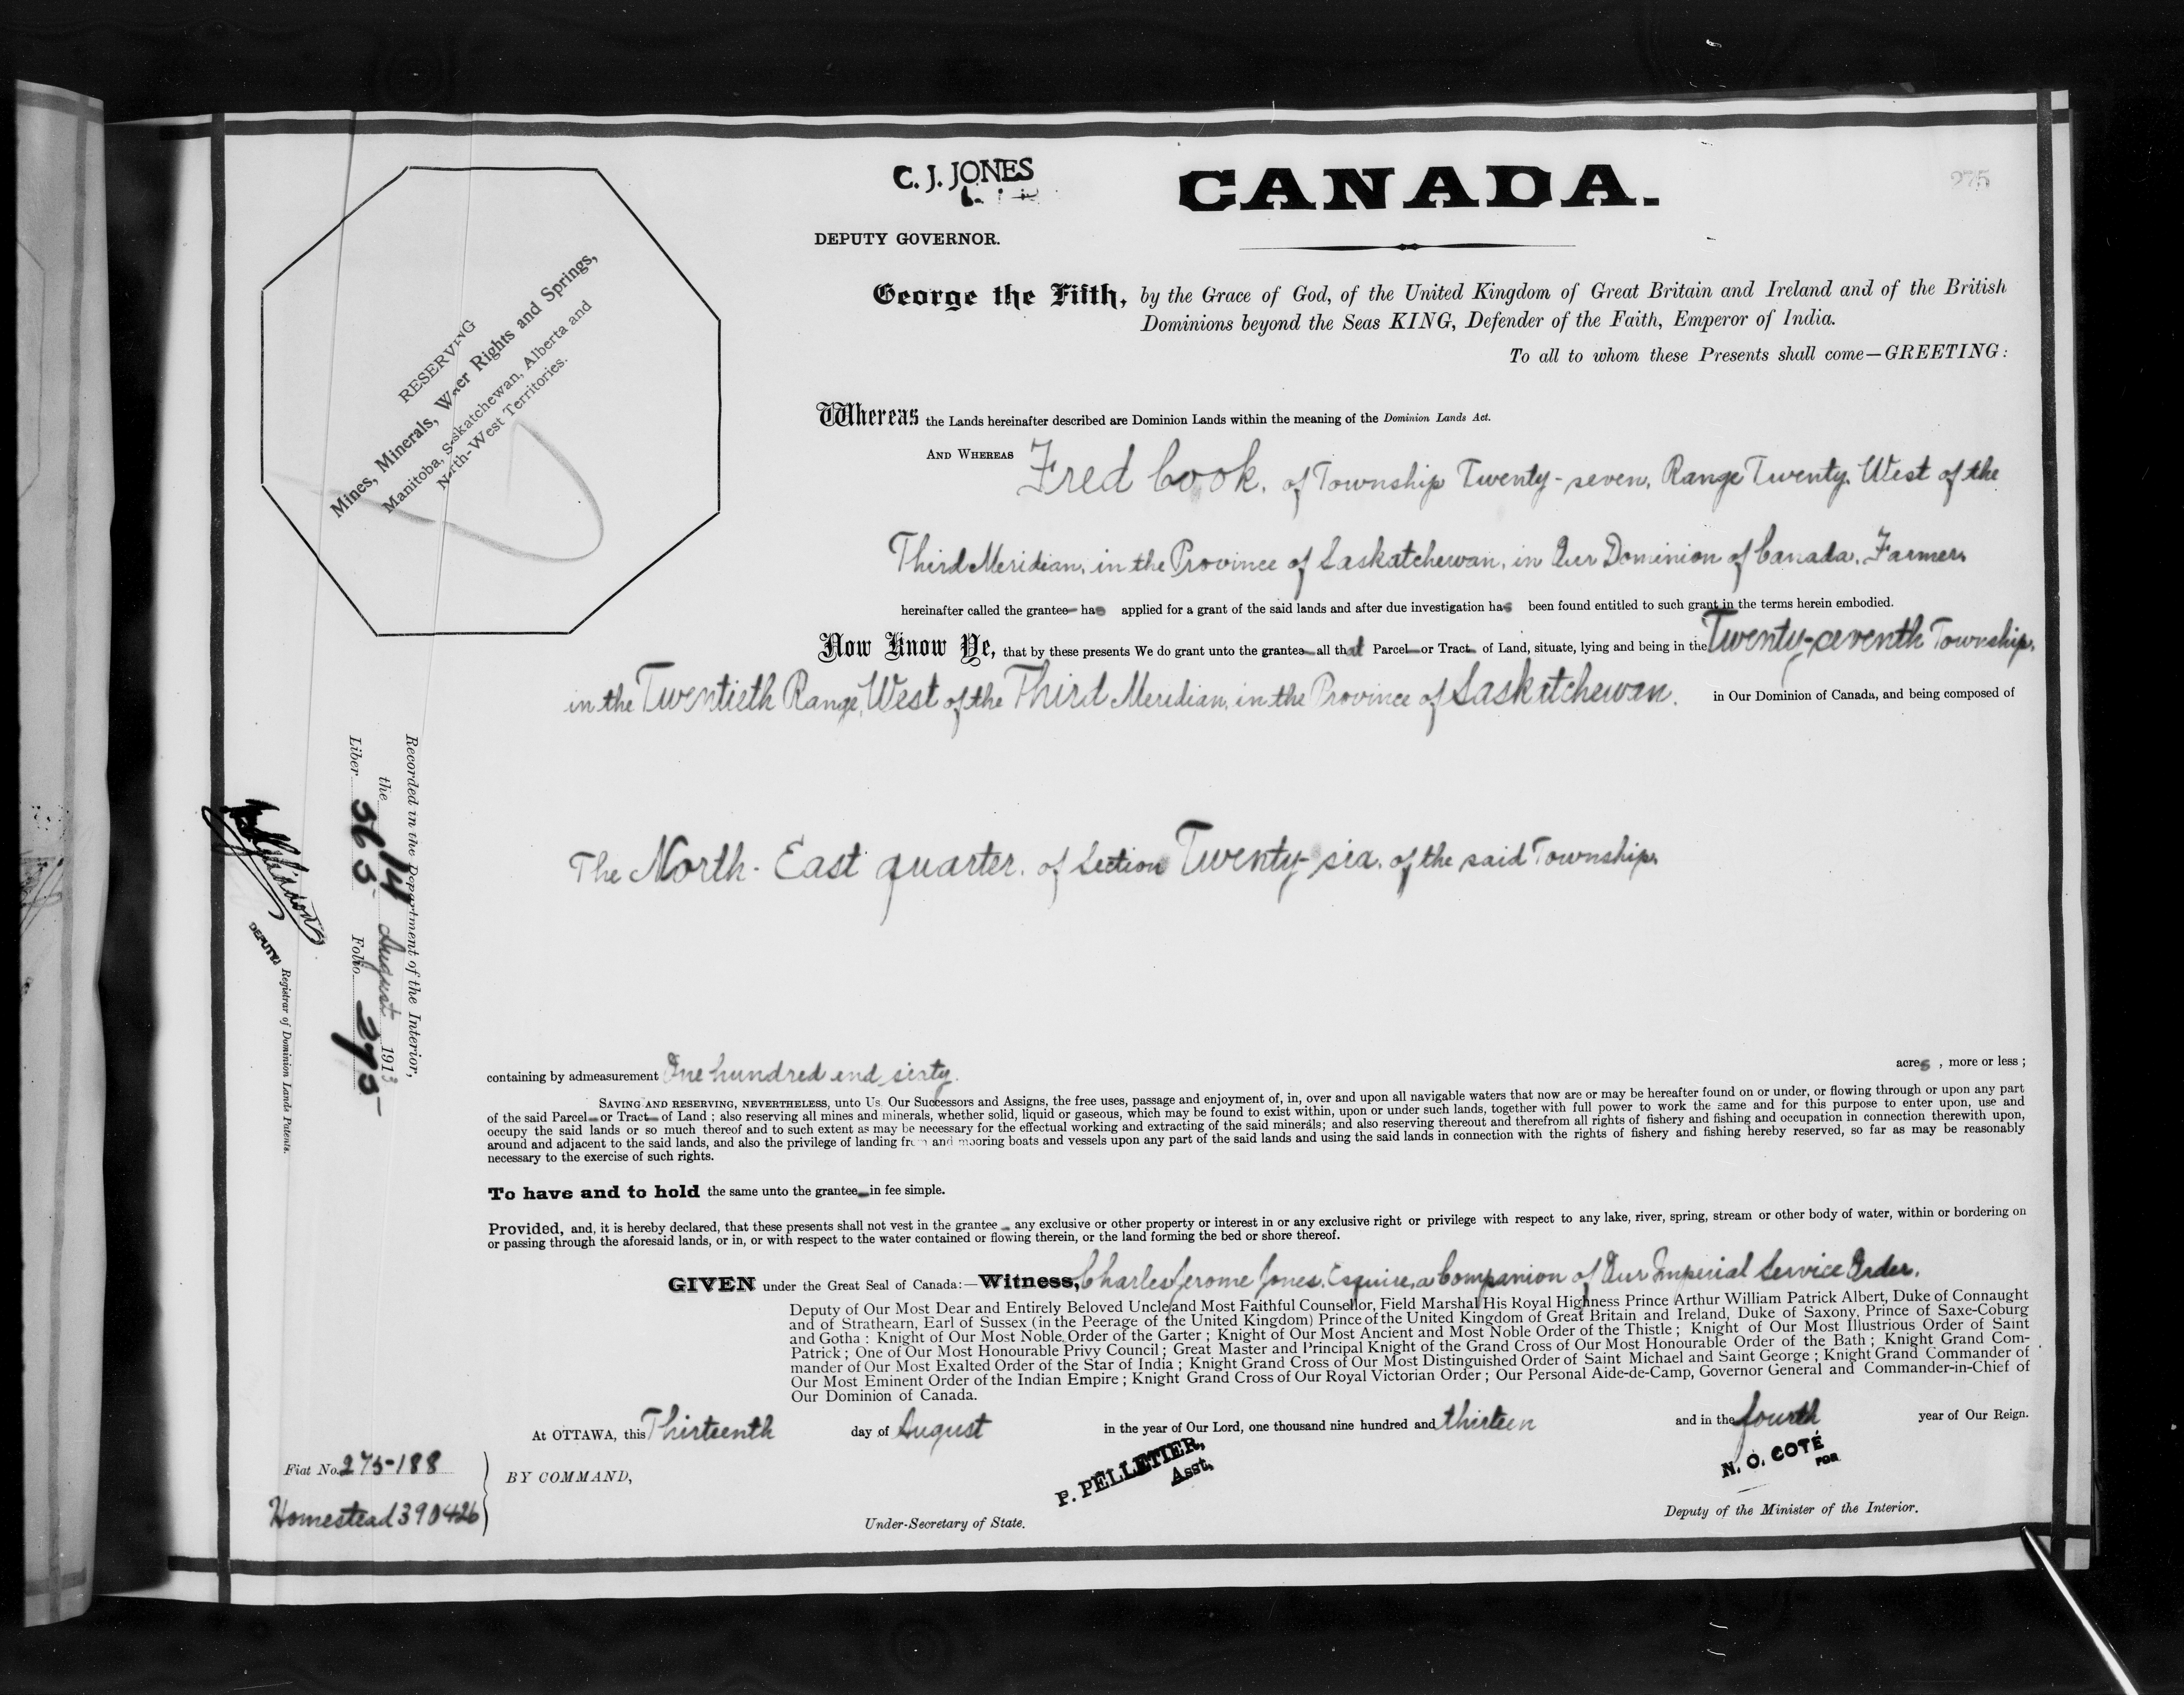 C. J. JONES
CANADA.
275
DEPUTY GOVERNOR.
George the Fifth, by the Grace of God, of the United Kingdom of Great Britain and Ireland and of the British
Dominions beyond the Seas KING, Defender of the Faith, Emperor of India.
To all to whom these Presents shall come—GREETING:
RESERVING
Mines, Minerals, Water Rights and Springs,
Manitoba, Saskatchewan, Alberta and
North-West Territories.
Whereas the Lands hereinafter described are Dominion Lands within the meaning of the Dominion Lands Act.
AND WHEREAS Fred Cook, of Township Twenty-seven, Range Twenty, West of the
Third Meridian, in the Province of Saskatchewan, in Our Dominion of Canada, Farmer,
hereinafter called the grantee has applied for a grant of the said lands and after due investigation has been found entitled to such grant in the terms herein embodied.
Now Know Ye, that by these presents We do grant unto the grantee all that Parcel or Tract of Land, situate, lying and being in the Twenty-seventh Township,
in the Twentieth Range, West of the Third Meridian, in the Province of Saskatchewan, in Our Dominion of Canada, and being composed of
The North-East quarter, of Section Twenty-six, of the said Township,
Recorded in the Department of the Interior,
the 14 August 1913
Liber 565 Folio 275
DEPUTY Registrar of Dominion Lands Patents.
containing by admeasurement One hundred and sixty acres, more or less;
SAVING AND RESERVING, NEVERTHELESS, unto Us Our Successors and Assigns, the free uses, passage and enjoyment of, in, over and upon all navigable waters that now are or may be hereafter found on or under, or flowing through or upon any part
of the said Parcel or Tract of Land; also reserving all mines and minerals, whether solid, liquid or gaseous, which may be found to exist within, upon or under such lands, together with full power to work the same and for this purpose to enter upon, use and
occupy the said lands or so much thereof and to such extent as may be necessary for the effectual working and extracting of the said minerals; and also reserving thereout and therefrom all rights of fishery and fishing and occupation in connection therewith upon,
around and adjacent to the said lands, and also the privilege of landing from and mooring boats and vessels upon any part of the said lands and using the said lands in connection with the rights of fishery and fishing hereby reserved, so far as may be reasonably
necessary to the exercise of such rights.
To have and to hold the same unto the grantee in fee simple.
Provided, and, it is hereby declared, that these presents shall not vest in the grantee any exclusive or other property or interest in or any exclusive right or privilege with respect to any lake, river, spring, stream or other body of water, within or bordering on
or passing through the aforesaid lands, or in, or with respect to the water contained or flowing therein, or the land forming the bed or shore thereof.
GIVEN under the Great Seal of Canada:—Witness, Charles Jerome Jones, Esquire, a Companion of Our Imperial Service Order,
Deputy of Our Most Dear and Entirely Beloved Uncle and Most Faithful Counsellor, Field Marshal His Royal Highness Prince Arthur William Patrick Albert, Duke of Connaught
and of Strathearn, Earl of Sussex (in the Peerage of the United Kingdom) Prince of the United Kingdom of Great Britain and Ireland, Duke of Saxony, Prince of Saxe-Coburg
and Gotha: Knight of Our Most Noble Order of the Garter; Knight of Our Most Ancient and Most Noble Order of the Thistle; Knight of Our Most Illustrious Order of Saint
Patrick; One of Our Most Honourable Privy Council; Great Master and Principal Knight of the Grand Cross of Our Most Honourable Order of the Bath; Knight Grand Com-
mander of Our Most Exalted Order of the Star of India; Knight Grand Cross of Our Most Distinguished Order of Saint Michael and Saint George; Knight Grand Commander of
Our Most Eminent Order of the Indian Empire; Knight Grand Cross of Our Royal Victorian Order; Our Personal Aide-de-Camp, Governor General and Commander-in-Chief of
Our Dominion of Canada.
At OTTAWA, this Thirteenth day of August in the year of Our Lord, one thousand nine hundred and thirteen and in the fourth year of Our Reign.
Fiat No. 275-188
BY COMMAND,
P. PELLETIER,
Asst.
N. O. COTÉ
FOR
Homestead 390426
Under-Secretary of State.
Deputy of the Minister of the Interior.